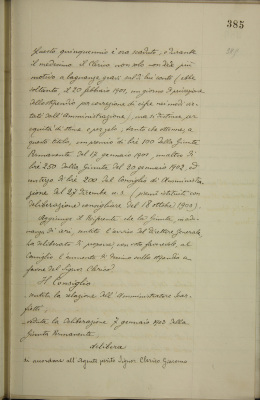 385
Questo quinquennio è ora scaduto, e durante
il medesimo il Clerico non solo non diè più
motivo a lagnanze gravi sul di lui conto (ebbe
soltanto, il 20 febbraio 1901, un giorno di privazione
dello stipendio per correzione di cifre nei modi
dell'Amministrazione), ma si distinse per
e zelo, tanto che ottenne, a
questo titolo, un premio di lire 100 dalla Giunta
Permanente del 17 gennaio 1901, un altro di
lire 250 dalla Giunta del 20 gennaio 1902, ed
un terzo di lire 200 dal Consiglio di Amministra-
zione del 27 dicembre u.s. (premi istituiti con
deliberazione consigliare del 18 ottobre 1900).
Aggiunge il Riferente che la Giunta, in adu-
nanza di ieri, sentito l'avviso del Direttore Generale
ha deliberato di proporre, con voto favorevole, al
Consiglio l'aumento di
favore del Signor Clerico.
Il Consiglio
sentita la relazione dell'Amministratore
vista la deliberazione 7 gennaio 1903 della
Giunta Permanente,
delibera
di accordare all'Agente perito Signor Clerico Giacomo